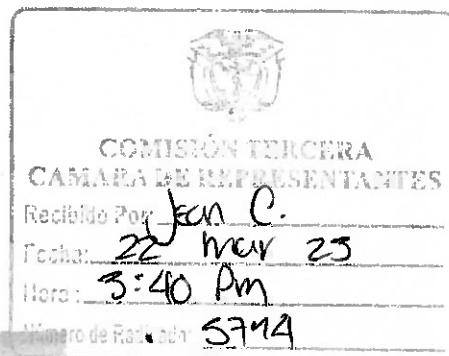 COMISIÓN TERCERA
CAMARA DE REPRESENTANTES
Recibido Por: Jean C.
Fecha: 22 mar 23
Hora: 3:40 Pm
Número de Radicado: